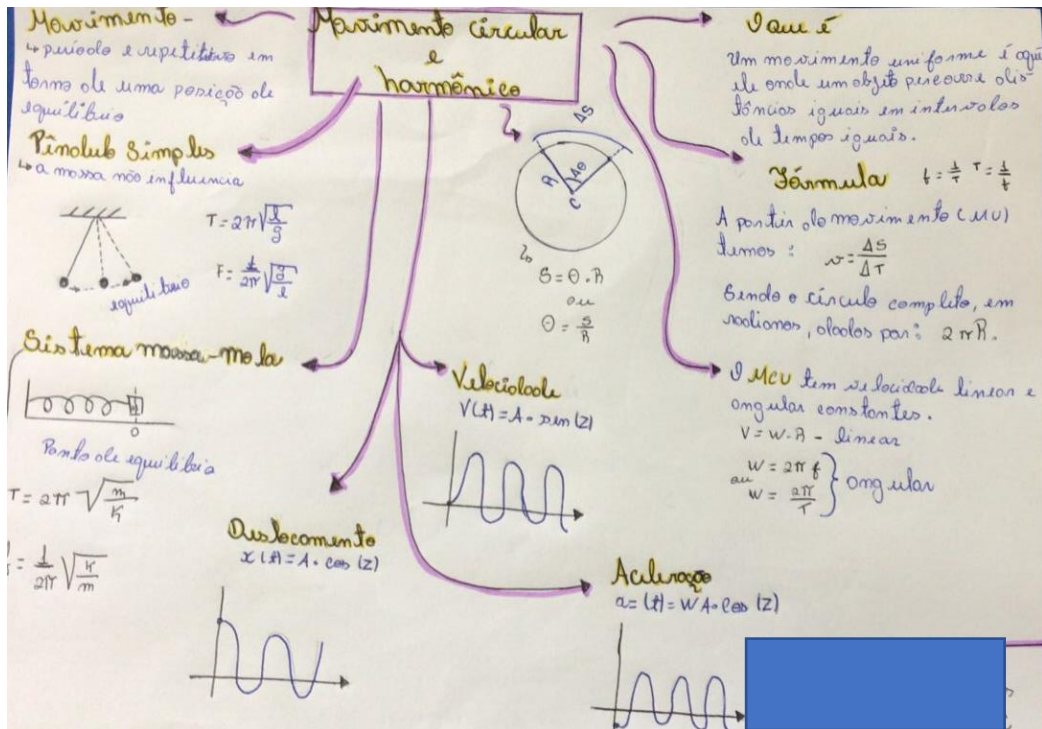 Movimento circular
e
harmônico
Movimento -
↳ período e repetitivo em
torno de uma posição de
equilíbrio
Pêndulo Simples
↳ a massa não influencia
T = 2π√(l/g)
F = 1/2π √(g/l)
equilíbrio
Sistema massa-mola
0
Ponto de equilíbrio
T = 2π √(m/K)
= 1/2π √(K/m)
Deslocamento
x(t) = A · cos (z)
ΔS
R
Δθ
C
S = θ . R
ou
θ = S/R
Velocidade
V(t) = A · sen (z)
Aceleração
a = (t) = WA · Cos (z)
O que é
Um movimento uniforme é aqu
ele onde um objeto percorre dis-
tâncias iguais em intervalos
de tempos iguais.
Fórmula f = 1/T T = 1/f
A partir do movimento (MU)
temos : v = ΔS/ΔT
Sendo o círculo completo, em
radianos, dados por: 2πR.
O MCU tem velocidade linear e
angular constantes.
V = W · R - linear
W = 2πf
ou
W = 2π/T
angular